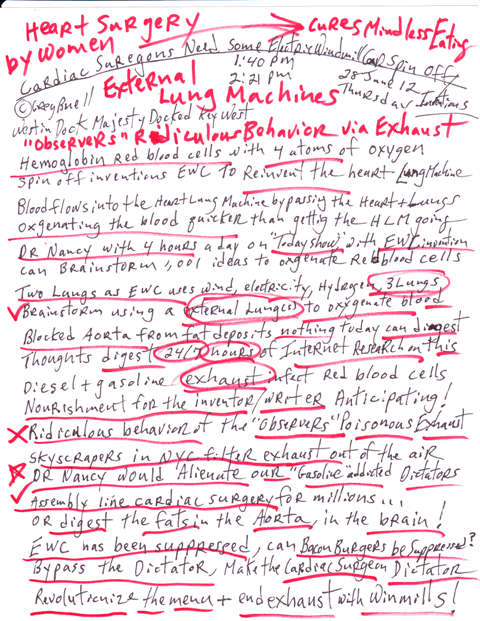 Heart Surgery → cures Mindless Eating
by Women
Cardiac Suregons Need Some Electric Windmill Car Spin offs
1:40 pm
2:21 pm
28 June 12
Thursday Inventions
External
Lung Machines
©Greg Buell
Westin Dock Majesty Docked Key West
"Observers" Ridiculous Behavior via Exhaust
Hemoglobin Red blood cells with 4 atoms of oxygen
Spin off inventions EWC to Reinvent the heart Lung Machine
Blood flows into the Heart Lung Machine bypassing the Heart + Lungs
oxgenating the blood quicker than getting the HLM going
DR Nancy with 4 hours a day on "Today show" with EWC invention
can Brainstorm 1,001 ideas to oxgenate Red blood cells
Two Lungs as EWC uses wind, electricity, Hydrogen, 3 Lungs
Brainstorm using a external Lung(s) to oxygenate blood
Blocked Aorta from fat deposits nothing today can digest
Thoughts digest 24/7 hours of Internet Research on this
Diesel + gasoline exhaust infect Red blood cells
Nourishment for the inventor/writer Anticipating!
Ridiculous behavior of the "observers" Poisonous Exhaust
Skyscrapers in NYC filter exhaust out of the air
DR Nancy would Alienate our "Gasoline" addicted Dictators
Assembly line cardiac surgery for millions...
OR digest the fats in the Aorta, in the brain!
EWC has been suppressed, can Bacon Burgers be Suppressed?
Bypass the Dictator, Make the Cardiac Surgeon Dictator
Revolutionize the menu + end exhaust with Winmills!